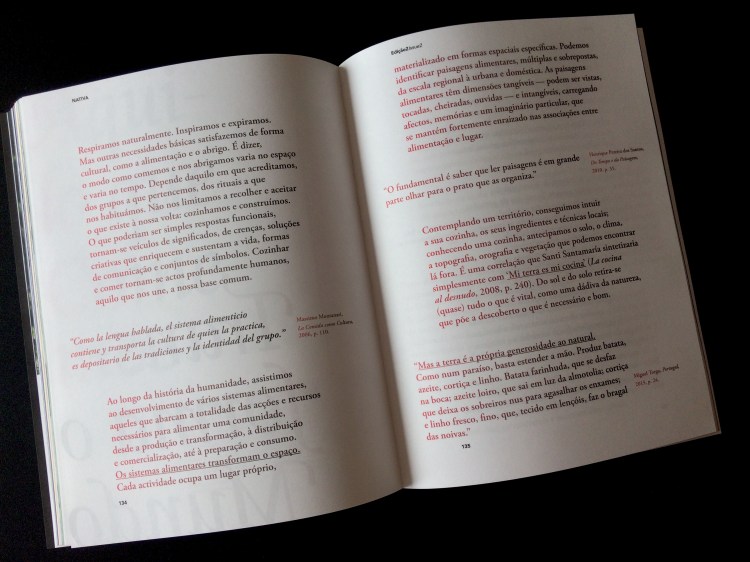 NATIVA
Respiramos naturalmente. Inspiramos e expiramos.
Mas outras necessidades básicas satisfazemos de forma
cultural, como a alimentação e o abrigo. É dizer,
o modo como comemos e nos abrigamos varia no espaço
e varia no tempo. Depende daquilo em que acreditamos,
dos grupos a que pertencemos, dos rituais a que
nos habituámos. Não nos limitamos a recolher e aceitar
o que existe à nossa volta: cozinhamos e construímos.
O que poderiam ser simples respostas funcionais,
tornam-se veículos de significados, de crenças, soluções
criativas que enriquecem e sustentam a vida, formas
de comunicação e conjuntos de símbolos. Cozinhar
e comer tornam-se actos profundamente humanos,
aquilo que nos une, a nossa base comum.
"Como la lengua hablada, el sistema alimenticio
contiene y transporta la cultura de quien la practica,
es depositario de las tradiciones y la identidad del grupo."
Massimo Montanari,
La Comida como Cultura,
2006, p. 110.
Ao longo da história da humanidade, assistimos
ao desenvolvimento de vários sistemas alimentares,
aqueles que abarcam a totalidade das acções e recursos
necessários para alimentar uma comunidade,
desde a produção e transformação, à distribuição
e comercialização, até à preparação e consumo.
Os sistemas alimentares transformam o espaço.
Cada actividade ocupa um lugar próprio,
134
materializado em formas espaciais específicas. Podemos
identificar paisagens alimentares, múltiplas e sobrepostas,
da escala regional à urbana e doméstica. As paisagens
alimentares têm dimensões tangíveis — podem ser vistas,
tocadas, cheiradas, ouvidas — e intangíveis, carregando
afectos, memórias e um imaginário particular, que
se mantém fortemente enraizado nas associações entre
alimentação e lugar.
"O fundamental é saber que ler paisagens é em grande
parte olhar para o prato que as organiza."
Henrique Pereira dos Santos,
Do Tempo e da Paisagem,
2010, p. 35.
Contemplando um território, conseguimos intuir
a sua cozinha, os seus ingredientes e técnicas locais;
conhecendo uma cozinha, antecipamos o solo, o clima,
a topografia, orografia e vegetação que podemos encontrar
lá fora. É uma correlação que Santi Santamaria sintetizaria
simplesmente com 'Mi terra es mi cocina' (La cocina
al desnudo, 2008, p. 240). Do sol e do solo retira-se
(quase) tudo o que é vital, como uma dádiva da natureza,
que põe a descoberto o que é necessário e bom.
"Mas a terra é a própria generosidade ao natural.
Como num paraíso, basta estender a mão. Produz batata,
azeite, cortiça e linho. Batata farinhuda, que se desfaz
na boca; azeite loiro, que sai em luz da almotolia; cortiça
que deixa os sobreiros nus para agasalhar os enxames;
e linho fresco, fino, que, tecido em lençóis, faz o bragal
das noivas."
Miguel Torga, Portugal
135